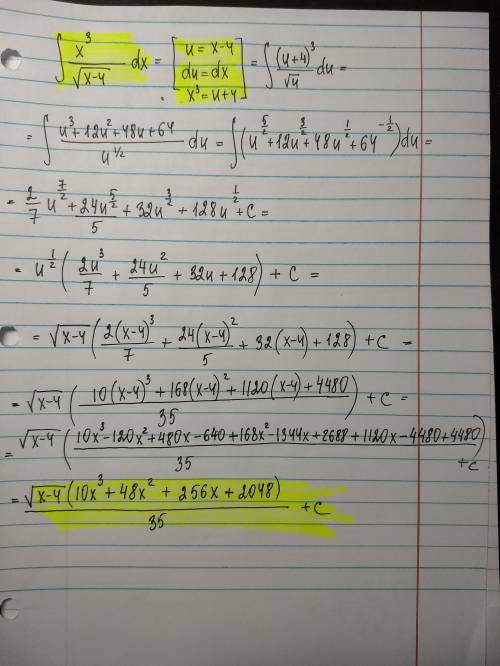 ∫ x³/√(x-4) dx = [u = x-4, du = dx, x³ = u+4] = ∫ (u+4)³/√u du =
= ∫ (u³+12u²+48u+64)/u^(1/2) du = ∫(u^(5/2)+12u^(3/2)+48u^(1/2)+64^(-1/2))du =
= 2/7 u^(7/2) + 24u^(5/2)/5 + 32u^(3/2) + 128u^(1/2) + C =
= u^(1/2) (2u³/7 + 24u²/5 + 32u + 128) + C =
= √(x-4) (2(x-4)³/7 + 24(x-4)²/5 + 32(x-4) + 128) + C =
= √(x-4) ((10(x-4)³ + 168(x-4)² + 1120(x-4) + 4480)/35) + C =
= √(x-4) ((10x³-120x²+480x-640+168x²-1344x+2688+1120x-4480+4480)/35) + C
= √(x-4)(10x³+48x²+256x+2048)/35 + C